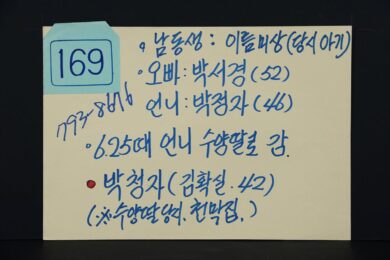 169
• 남동생 : 이름미상(당시 아기)
• 오빠 : 박서경(52)
언니 : 박정자(46)
793-8676
• 6.25때 언니 수양딸로 감.
• 박청자(김확실·42)
(※수양딸 당시. 천막집.)